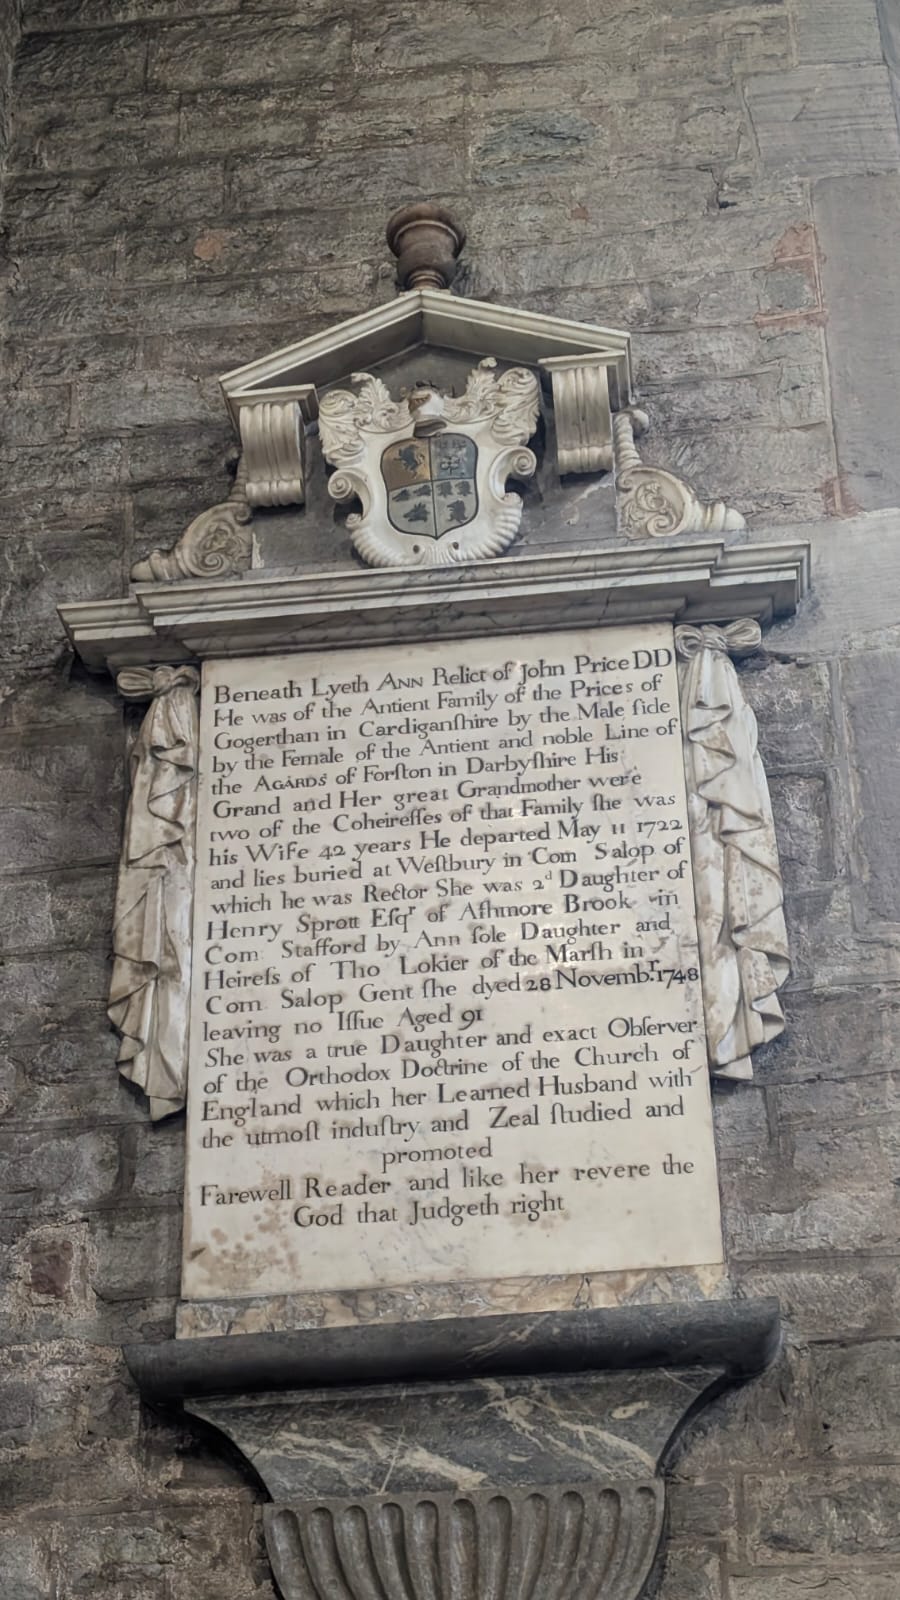 Beneath Lyeth ANN Relict of John Price DD
He was of the Antient Family of the Prices of
Gogerthan in Cardiganſhire by the Male ſide
by the Female of the Antient and noble Line of
the AGARDS of Forſton in Darbyſhire His
Grand and Her great Grandmother were
two of the Coheireſſes of that Family ſhe was
his Wife 42 years He departed May 11 1722
and lies buried at Weſtbury in Com Salop of
which he was Rector She was 2d Daughter of
Henry Sprott Eſqr of Aſhmore Brook in
Com Stafford by Ann ſole Daughter and
Heireſs of Tho Lokier of the Marſh in
Com Salop Gent ſhe dyed 28 Novembr 1748
leaving no Iſſue Aged 91
She was a true Daughter and exact Obſerver
of the Orthodox Doctrine of the Church of
England which her Learned Husband with
the utmoſt induſtry and Zeal ſtudied and
promoted
Farewell Reader and like her revere the
God that Judgeth right